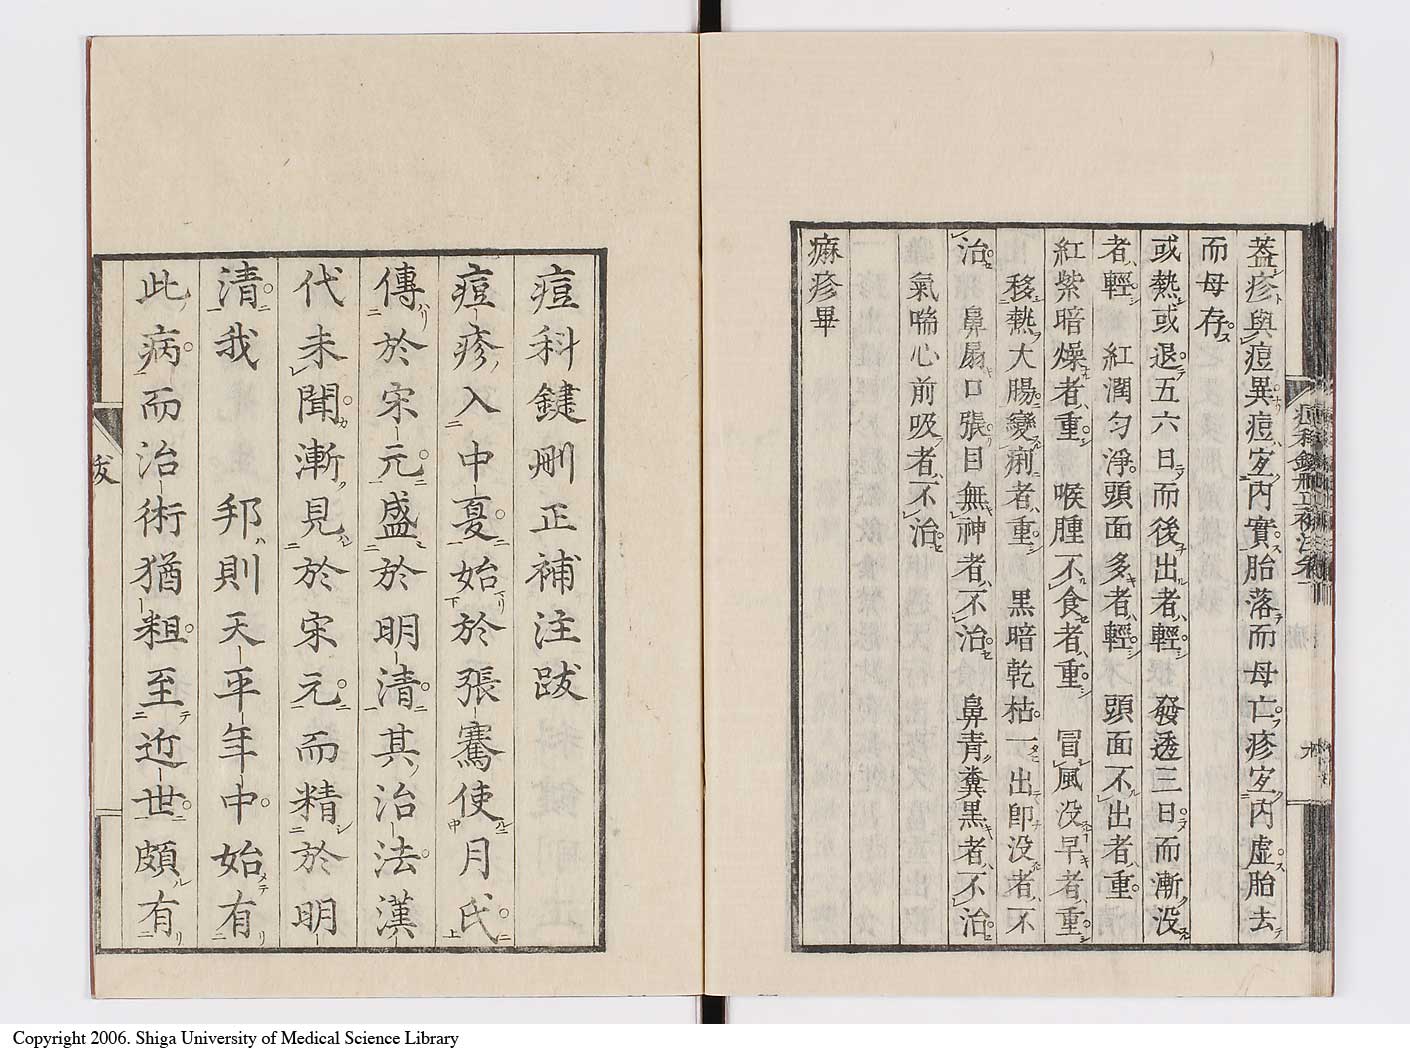 蓋疹與痘異痘宜内實胎落而母亡疹宜内虚胎去
而母存
或熱或退五六日而後出者輕　發透三日而漸没
者輕　紅潤匀淨頭面多者輕　頭面不出者重
紅紫暗燥者重　喉腫不食者重　冒風没早者重
移熱大腸變痢者重　黒暗乾枯一出即没者不
治　鼻扇口張目無神者不治　鼻青糞黒者不治
氣喘心前吸者不治
麻疹畢
痘科鍵刪正補注跋
痘疹入中夏始於張騫使月氏
傳於宋元盛於明清其治法漢
代未聞漸見於宋元而精於明
清我　邦則天平年中始有
此病而治術猶粗至近世頗有
跋
Copyright 2006. Shiga University of Medical Science Library